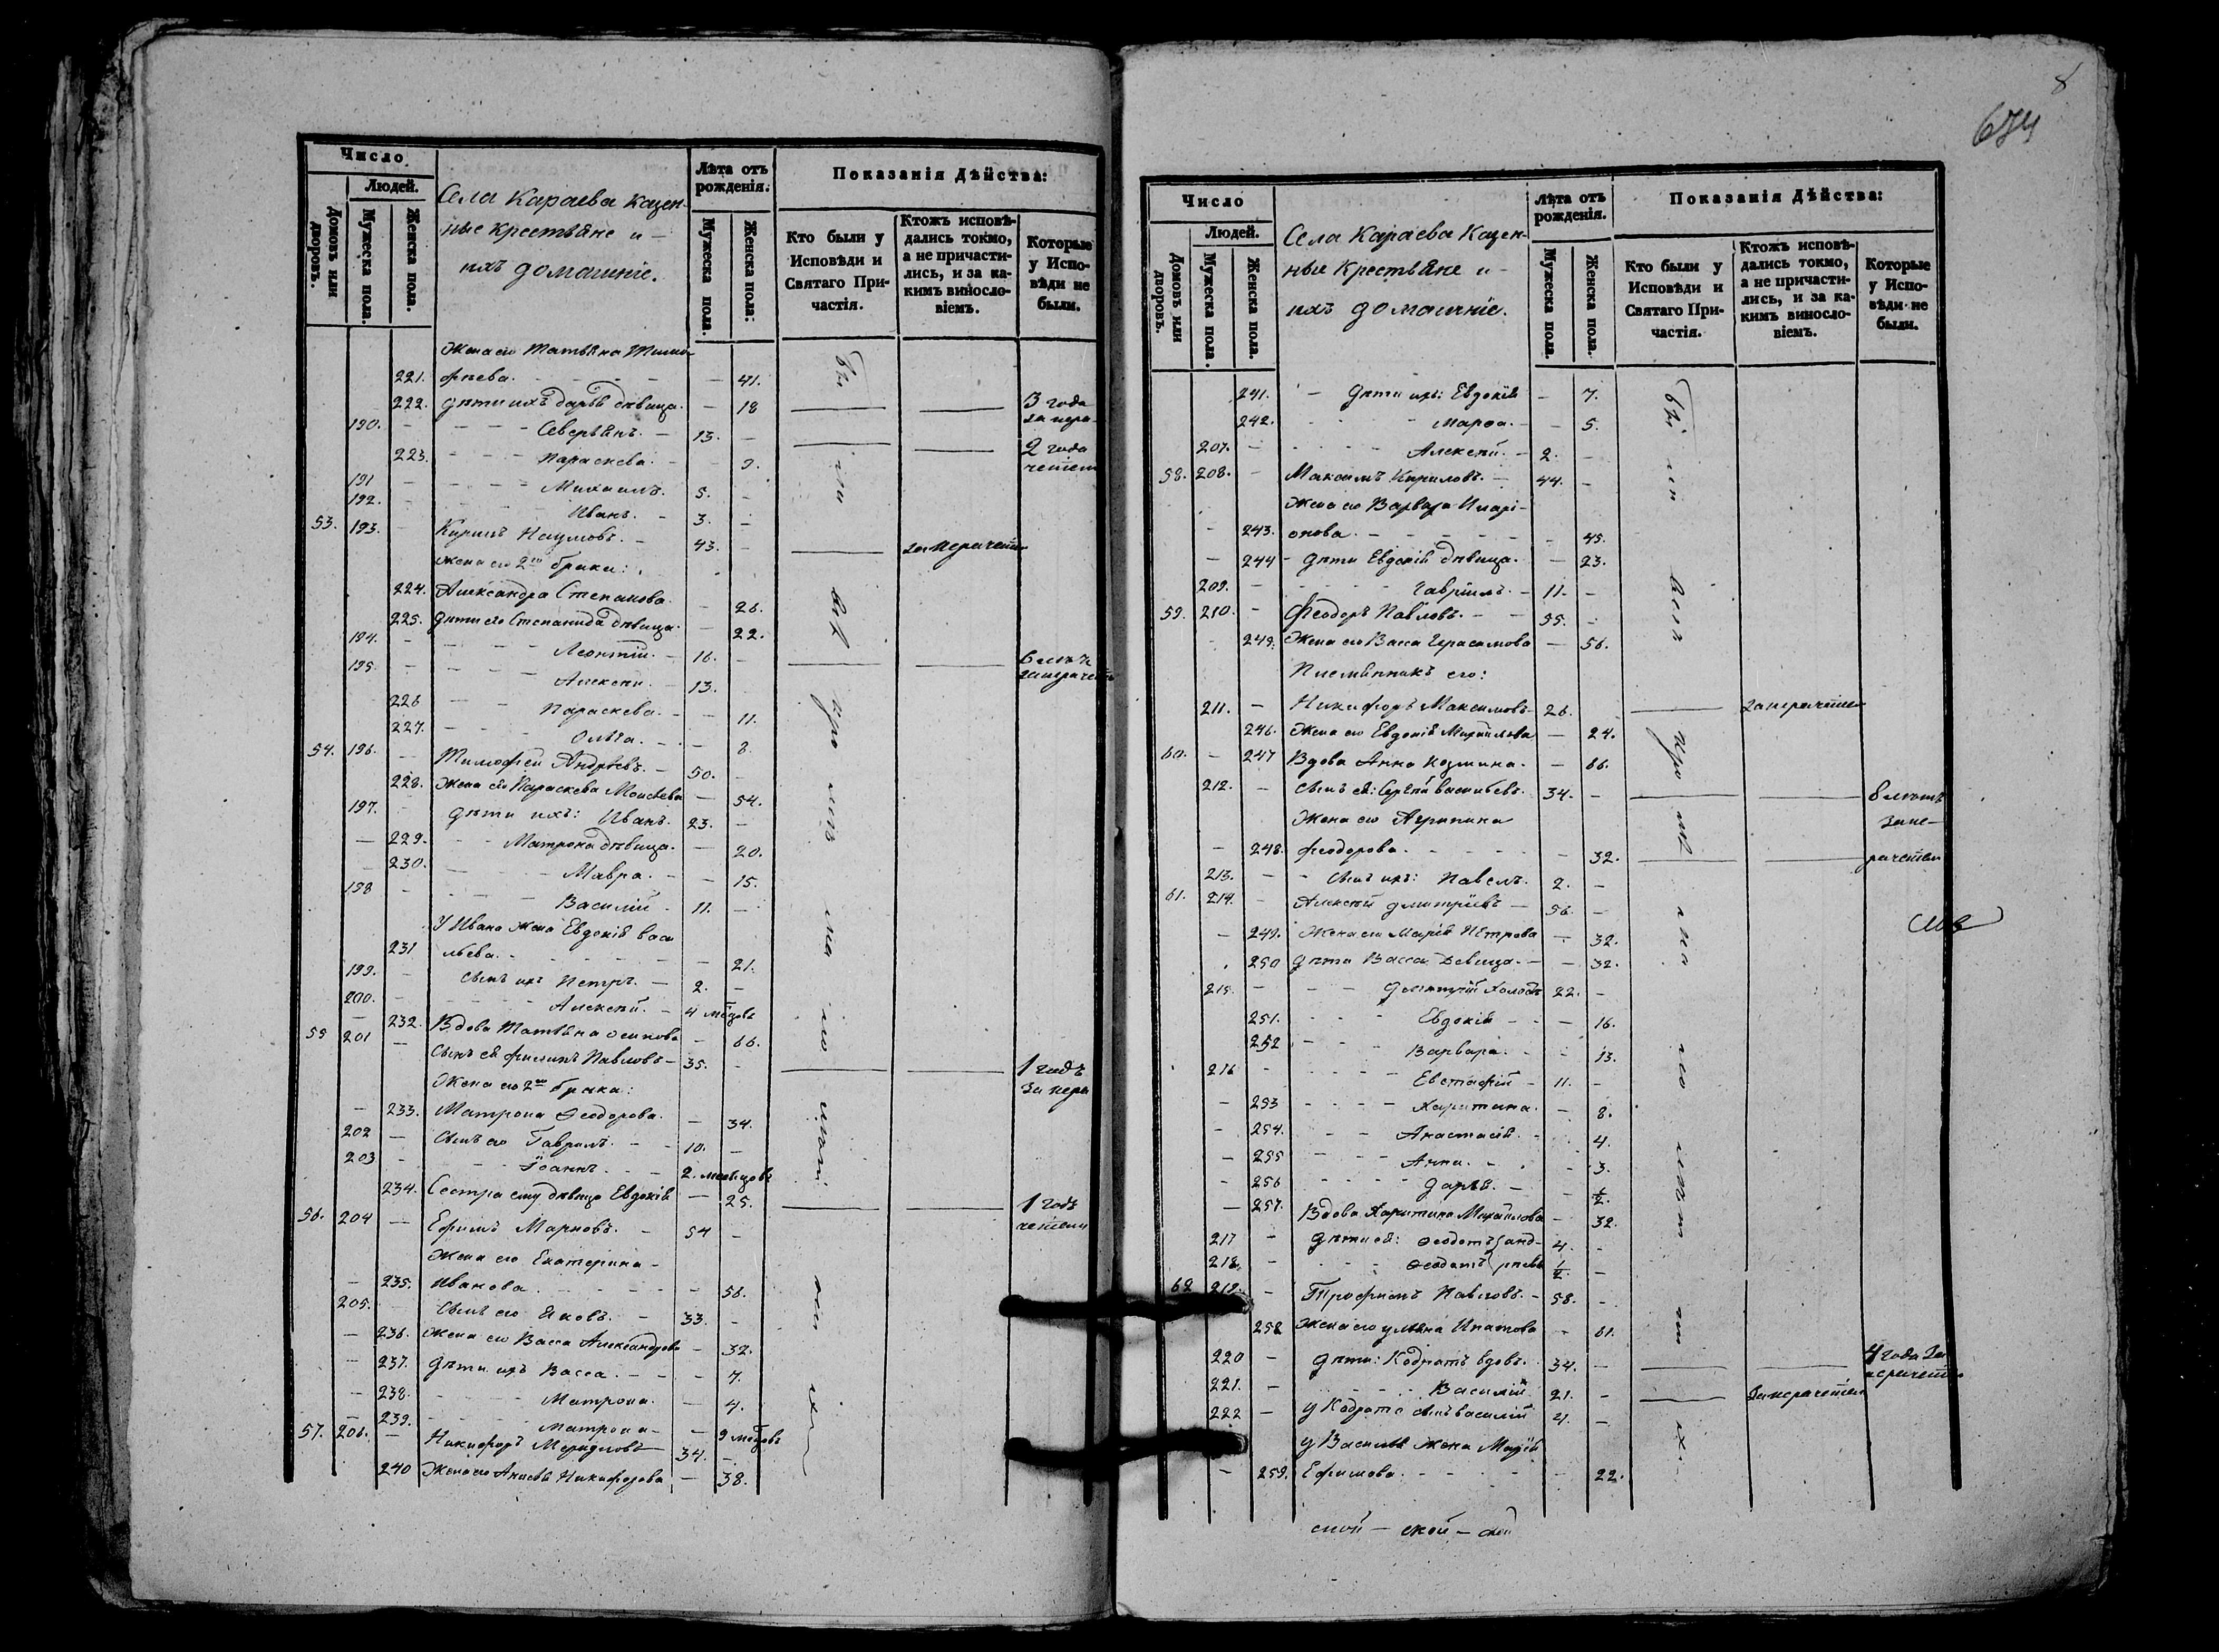 Число
Людей.
Домовъ или дворовъ.
Мужеска пола.
Женска пола.
Села Караева Казен-
ные крестьяне и
ихъ домашніе.
Лѣта отъ рожденія.
Мужеска пола.
Женска пола.
Показанія Дѣйства:
Кто были у Исповѣди и Святаго Причастія.
Ктожъ исповѣдались токмо, а не причастились, и за какимъ винословіемъ.
Которые у Исповѣди не были.
Жена его Татьяна Тимо
221. фѣева. - 41.
222. дѣти ихъ Дарья дѣвица. - 18 3 года
190. Северьянъ. 13. - 2 года
223. Параскева. - 9.
191 Михаилъ. 5. -
192. Иванъ. 3. -
53. 193. Кирилъ Наумовъ. 43. -
жена его 2го брака:
224. Александра Степанова - 26.
225. дѣти его Степанида дѣвица. - 22.
194. Леонтій. 16. -
195. Алексѣй. 13.
226 Параскева. - 11.
227. Ольга. - 8.
54. 196. Тимофей Андрѣевъ. 50. -
228. Жена его Параскева Моисѣева - 54.
197. дѣти ихъ: Иванъ. 23. -
229. Матрона дѣвица. - 20.
230. Мавра. - 15.
198 Василій 11. -
У Ивана жена Евдокія Васи
231 льева. - 21.
199. Сынъ ихъ Петръ. 2. -
200. Алексѣй. 4 мѣсцовъ
232. Вдова Татьяна Осипова - 66.
55 201 Сынъ ея Филипъ Павловъ 35. - 1 годъ
Жена его 2го брака:
233. Матрона Феодорова. - 34.
202 Сынъ его Гаврилъ. 10. -
203 Іоаннъ. 2. мѣсяцовъ
234. Сестра ему дѣвица Евдокія - 25. 1 годъ
56. 204 Ефимъ Марковъ. 54 -
Жена его Екатерина
235. Иванова. - 56.
205. Сынъ его Яковъ. 33. -
236. Жена его Васса Александрова - 32.
237. дѣти ихъ Васса. - 7.
238. Матрона. - 4.
239. Матрона - 9 мѣсцовъ
57. 206. Никифоръ 34. -
240 Жена его Никифорова - 38.
8
674
Число
Людей.
Домовъ или дворовъ.
Мужеска пола.
Женска пола.
Села Караева Казен-
ные Крестьяне и -
ихъ домашніе.
Лѣта отъ рожденія.
Мужеска пола.
Женска пола.
Показанія Дѣйства:
Кто были у Исповѣди и Святаго Причастія.
Ктожъ исповѣдались токмо, а не причастились, и за какимъ винословіемъ.
Которые у Исповѣди не были.
241. Дѣти ихъ: Евдокія - 7.
242. Марѳа. - 5.
207. Алексѣй. 2. -
58. 208. Максимъ Кириловъ. 44. -
Жена его Варвара Иларі-
243. онова. - 45.
244 дѣти Евдокія дѣвица. - 23.
209. Гавріилъ. 11. -
59. 210. Феодоръ Павловъ. 55. -
245. Жена его Васса Герасимова - 56.
Племянникъ его:
211. Никифоръ Максимовъ 26.
246. Жена его Евдокія Михайлова - 24.
60. 247 Вдова Анна Козмина. - 66.
212. Сынъ ея: Сергѣй Васильевъ. 34. -
Жена его Агрипина
248. Феодорова. - 32.
213. Сынъ ихъ: Павелъ. 2. -
61. 214. Алексѣй Дмитріевъ 56. -
249. Жена его Марія Петрова - 32.
250 дѣти Васса Дѣвица. - 32.
215. Дмитрій Холостъ 22. -
251. Евдокія - 16.
252 Варвара. - 13.
216 Евстафій 11. -
253 Харитина. - 8.
254. Анастасія. 4.
255 Анна. - 3.
256 Дарья. - 1/2.
257. Вдова Харитина Михайлова - 32.
217 дѣти ея: Феодотъ 4. -
218. Феодотъ 1/2. -
62 219. Трофимъ Павловъ. 58. -
258 Жена его Ульяна Ипатова - 61.
220 дѣти: Кодратъ вдовъ. 34. - 4 года
221. Василій 21. -
222 у Кодрата сынъ Василій 4. -
у Василья жена Марія
259. Ефимова. - 22.